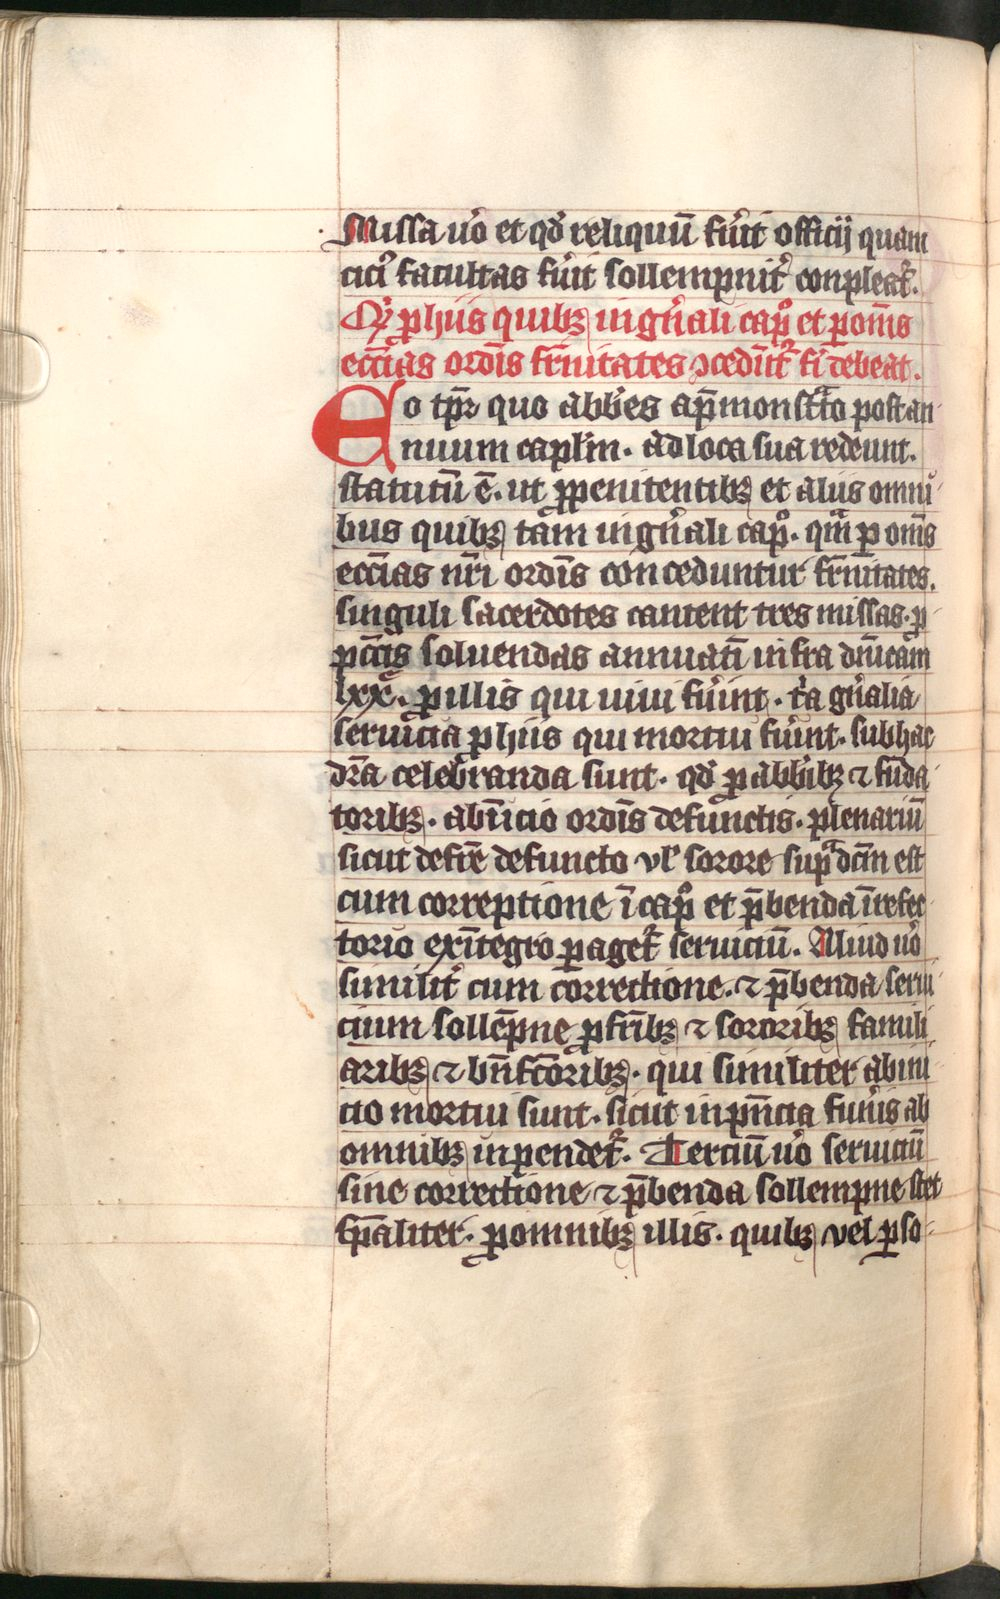 Missa ũo et qđ reliquũ fũit officij quam
citi᷒ facultas fũit sollempnit᷒ conpleat᷒.
Qđ ꝓ hiis quibꝫ in gñali capͦ et ꝑ om̃s
eccĩas ordĩs fr̃nitates ꝯcedũt᷒ fi᷒ debeat.
Eo tꝑe quo abb̃es ap̃monstͣto post an
nuum capl̃m. ad loca sua redeunt.
statutũ ẽ. ut ꝓ penitentibꝫ et aliis omni
bus quibꝫ tam in gñali capͦ. qͣm ꝑ om̃s
eccĩas nr̃i ordĩs conceduntur fr̃nitates.
singuli sacerdotes cantent tres missas. ꝓ
pc̃cis soluendas annuatĩ infra dñicam
lxx̃. ꝓ illis qui uiui fũint. t̃a gñalia
seruicia ꝓ hiis qui mortui fũint. sub hac
dr̃a celebranda sunt. qđ ꝓ abb̃ibꝫ ⁊ fũda
toribꝫ. ab ĩicio ordĩs defunctis. plenariũ
sicut de fr̃e defuncto ul̃ sorore supͣdc̃m est
cum correptione ĩ capͦ et p̃benda ĩ refec
torio ex ĩtegro ꝑaget᷒ seruiciũ. Aliud ũo
similit᷒ cum c̃orrectione. ⁊ p̃benda serui
cium sollẽpne ꝓ fr̃ibꝫ ⁊ sororibꝫ famili
aribꝫ ⁊ bñfc̃oribꝫ. qui similiter ab ini
cio mortui sunt. sicut in p̃ncia fun᷒is ab
omnibꝫ inpendet᷒. Terciũ ũo seruiciũ
sine correctione ⁊ p̃benda sollempne stet
sp̃aliter. ꝓ omnibꝫ illis. quibꝫ vel ꝑso